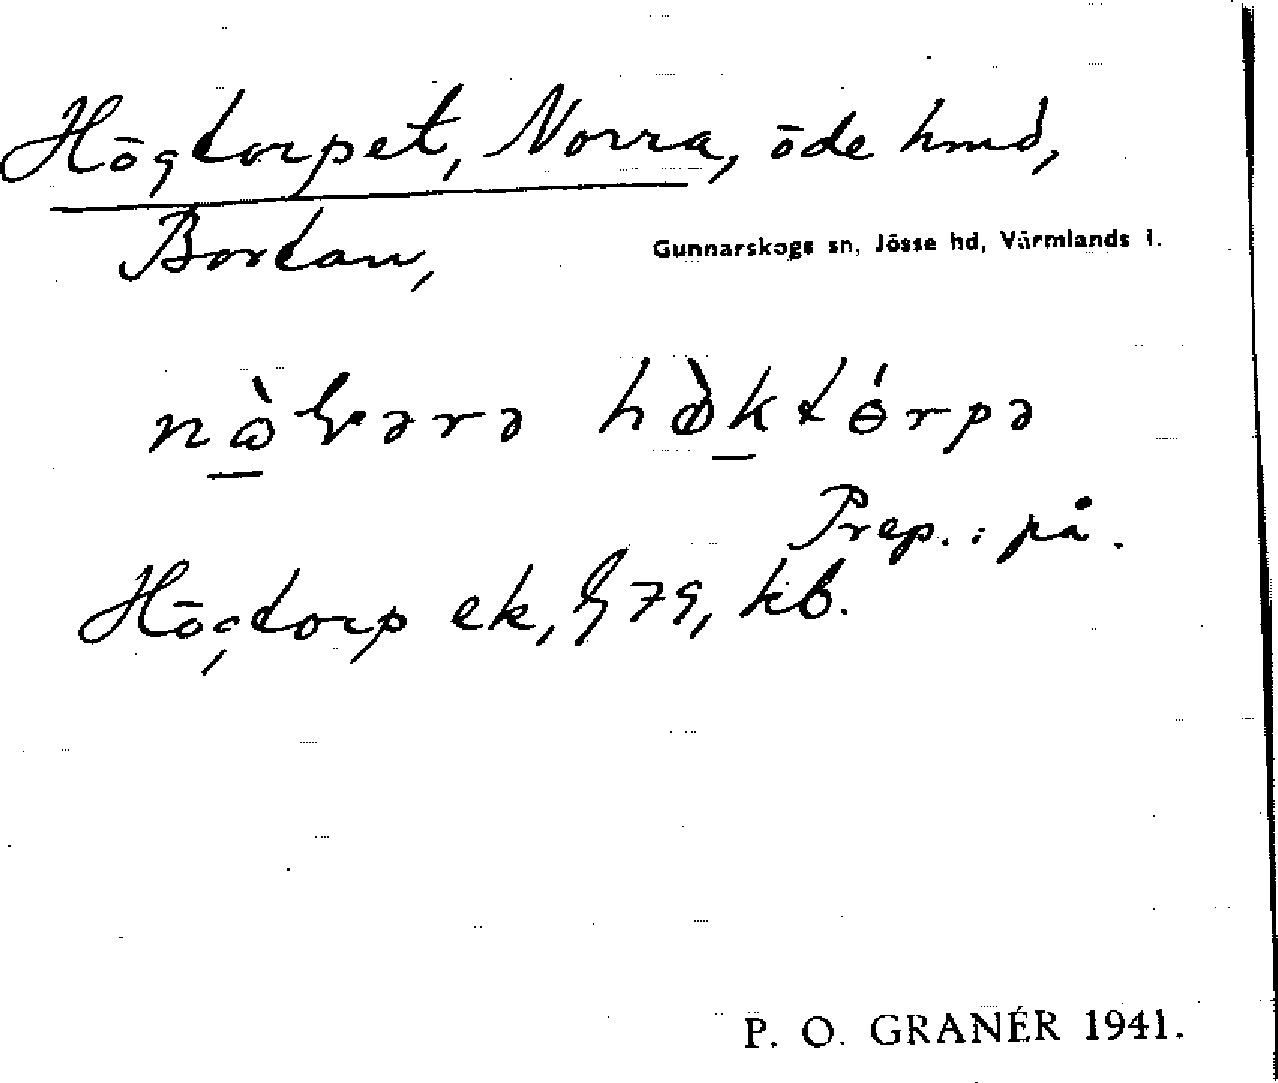 Högtorpet, Norra, öde hmd,
Bortan,
Gunnarskogs sn, Jösse hd, Värmlands l.
hø̀którpə
Prep.: på.
Högtorp ek, § 79, kb.
P. O. GRANÉR 1941.